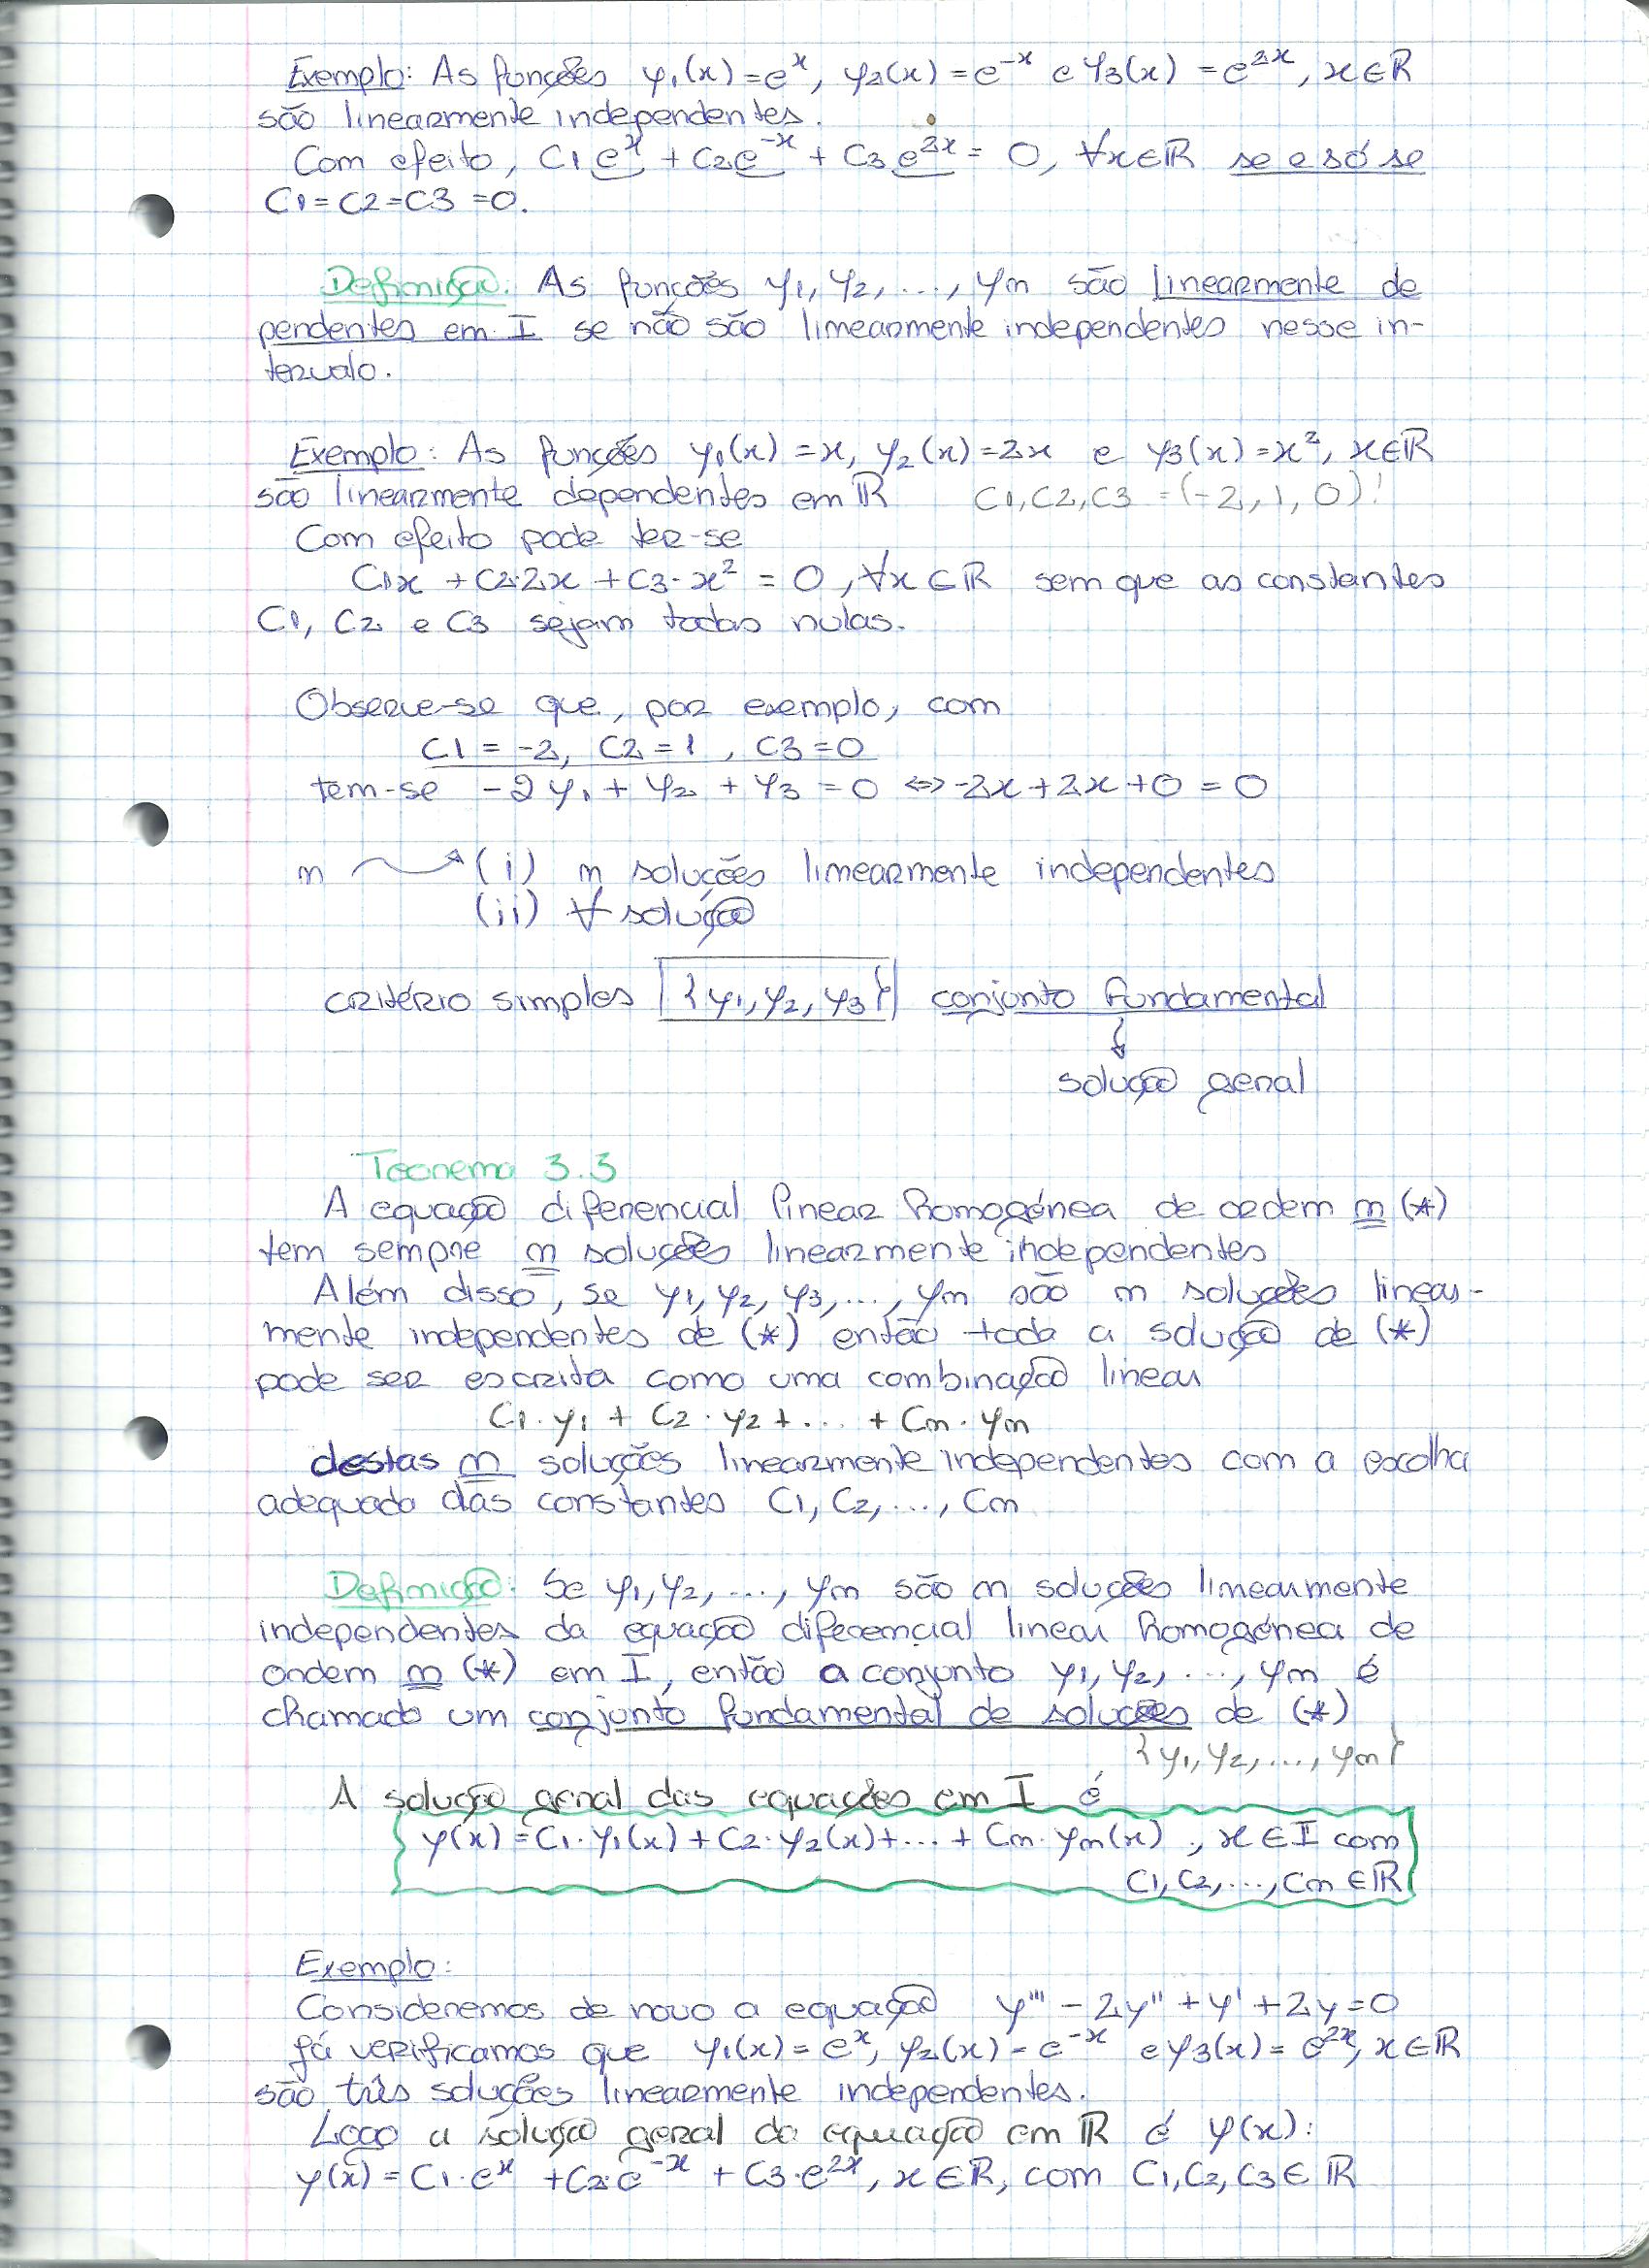 Exemplo: As funções y1(x)=e^x, y2(x)=e^-x e y3(x)=e^2x, x∈ℝ
são linearmente independentes.
Com efeito, C1 e^x + C2 e^-x + C3 e^2x = 0, ∀x∈ℝ se e só se
C1=C2=C3=0.
Definição: As funções y1, y2, ..., yn são linearmente de
pendentes em I se não são linearmente independentes nesse in-
tervalo.
Exemplo: As funções y1(x)=x, y2(x)=2x e y3(x)=x², x∈ℝ
são linearmente dependentes em ℝ C1,C2,C3 =(-2,1,0)!
Com efeito pode ter-se
C1x + C2·2x + C3·x² = 0, ∀x∈ℝ sem que as constantes
C1, C2 e C3 sejam todas nulas.
Observe-se que, por exemplo, com
C1 = -2, C2 = 1, C3 = 0
tem-se -2y1 + y2 + y3 = 0 ⇔ -2x+2x+0 = 0
n → (i) n soluções linearmente independentes
(ii) ∀ solução
critério simples {y1, y2, y3} conjunto fundamental
↓
solução geral
Teorema 3.3
A equação diferencial linear homogénea de ordem n (*)
tem sempre n soluções linearmente independentes
Além disso, se y1, y2, y3, ..., yn são n soluções linear-
mente independentes de (*) então toda a solução de (*)
pode ser escrita como uma combinação linear
C1·y1 + C2·y2 + ... + Cn·yn
destas n soluções linearmente independentes com a escolha
adequada das constantes C1, C2, ..., Cn
Definição: Se y1, y2, ..., yn são n soluções linearmente
independentes da equação diferencial linear homogénea de
ordem n (*) em I, então o conjunto y1, y2, ..., yn é
chamado um conjunto fundamental de soluções de (*)
{y1, y2, ..., yn}
A solução geral das equações em I é
y(x) = C1·y1(x) + C2·y2(x) + ... + Cn·yn(x), x∈I com
C1, C2, ..., Cn ∈ℝ
Exemplo:
Consideremos de novo a equação y''' - 2y'' + y' + 2y = 0
Já verificamos que y1(x) = e^x, y2(x) = e^-x e y3(x) = e^2x, x∈ℝ
são três soluções linearmente independentes.
Logo a solução geral da equação em ℝ é y(x):
y(x) = C1·e^x + C2·e^-x + C3·e^2x, x∈ℝ, com C1, C2, C3∈ℝ